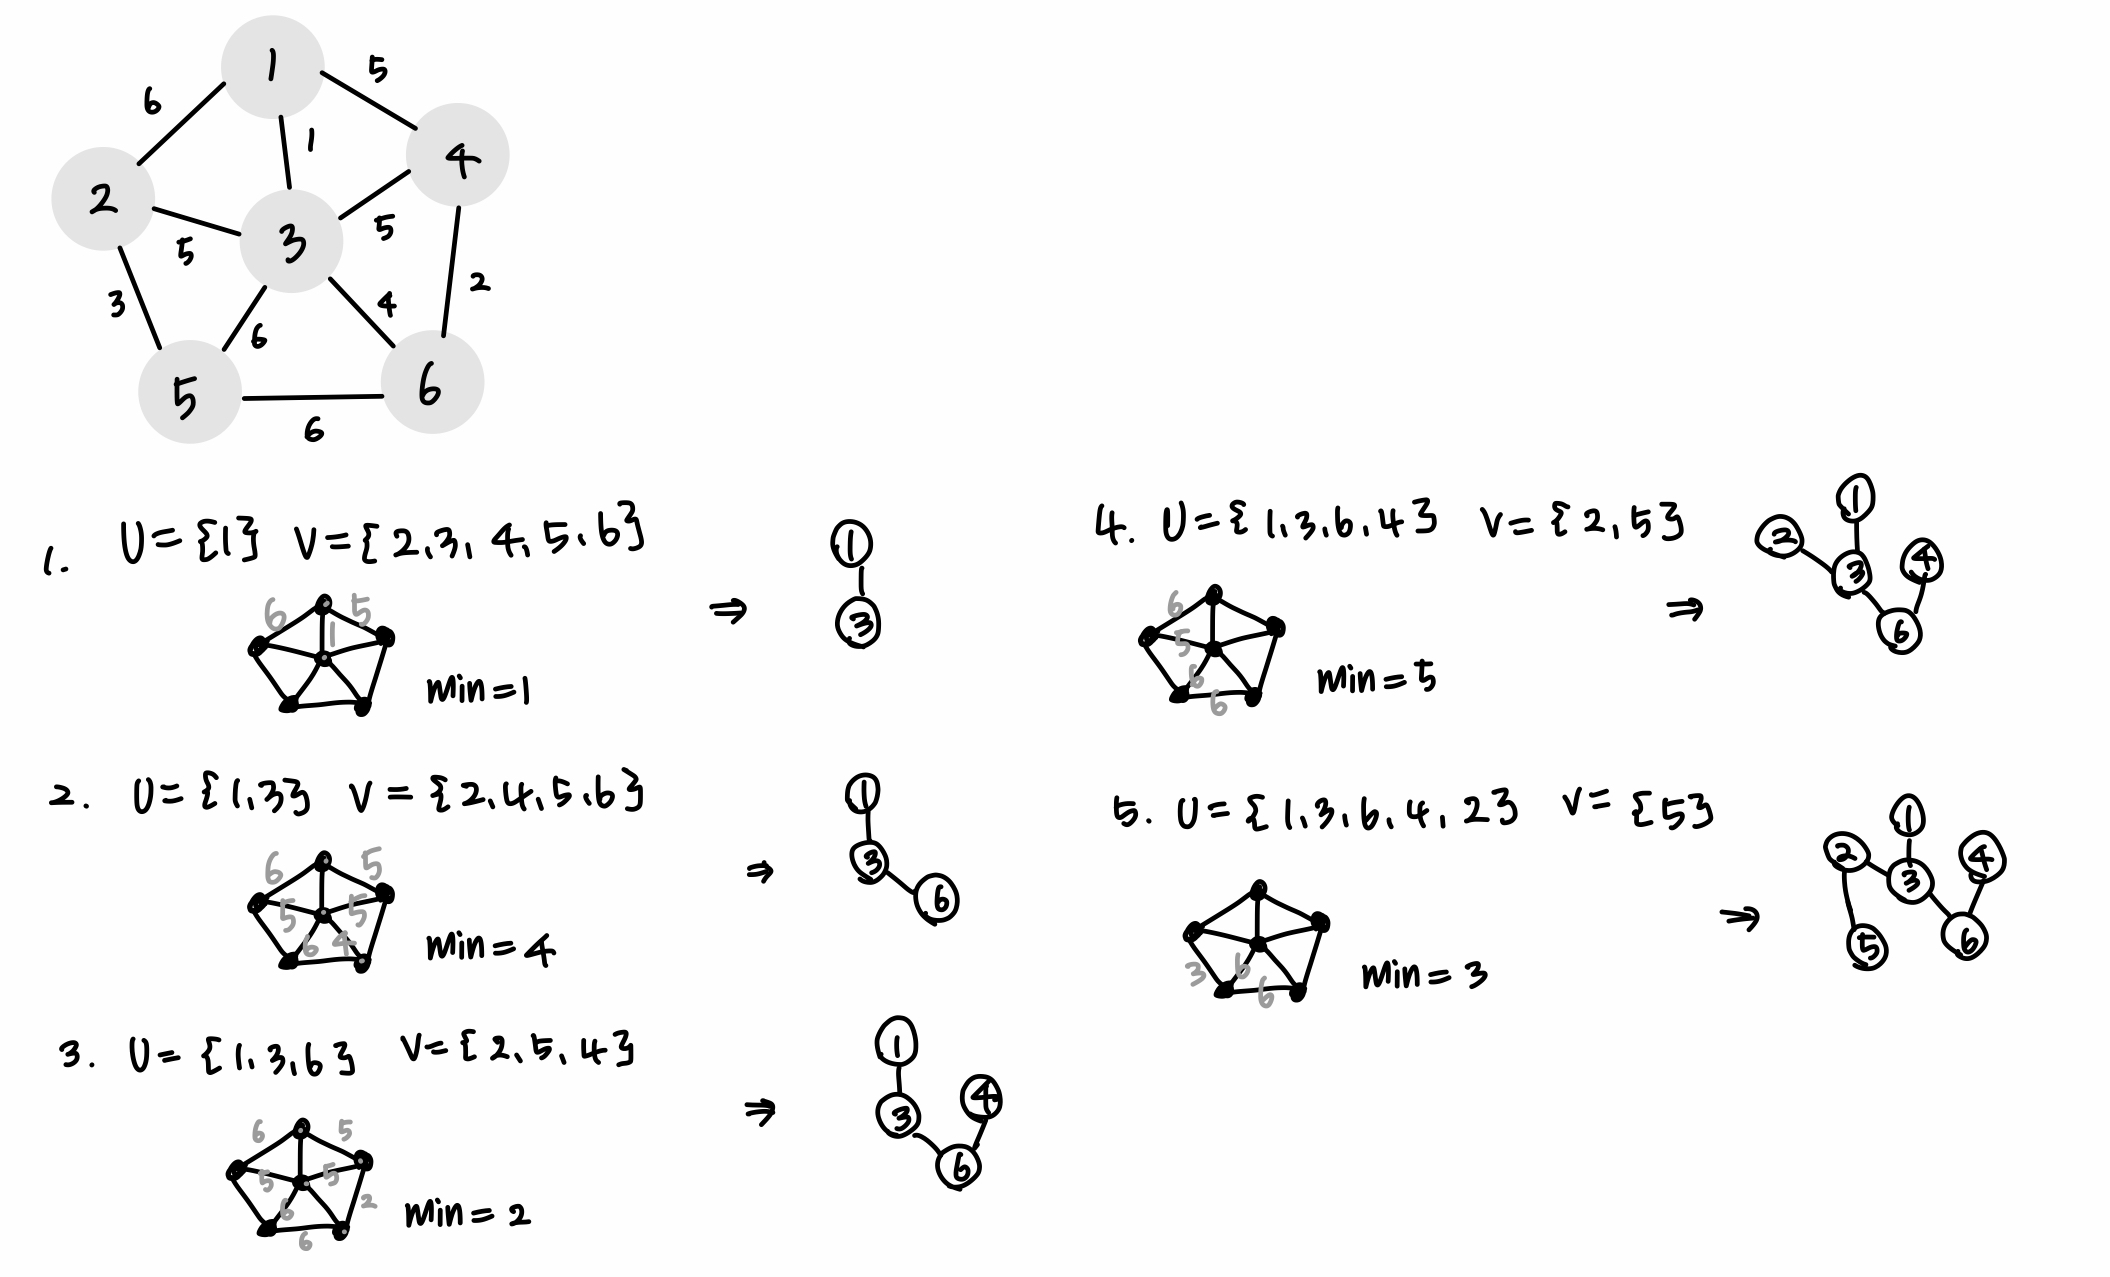 1
5
6
1
4
2
5
3
5
2
3
4
6
5
6
6
1. U = {1} V = {2,3,4,5,6}
6 5
1
min = 1
⇒
1
3
2. U = {1,3} V = {2,4,5,6}
6 5
5 5
6 4
min = 4
⇒
1
3
6
3. U = {1,3,6} V = {2,5,4}
6 5
5 5
6 2
6
min = 2
⇒
1
3 4
6
4. U = {1,3,6,4} V = {2,5}
6
5
6
6
min = 5
⇒
1
2
3 4
6
5. U = {1,3,6,4,2} V = {5}
3 6
6
min = 3
⇒
1
2 4
3
5 6